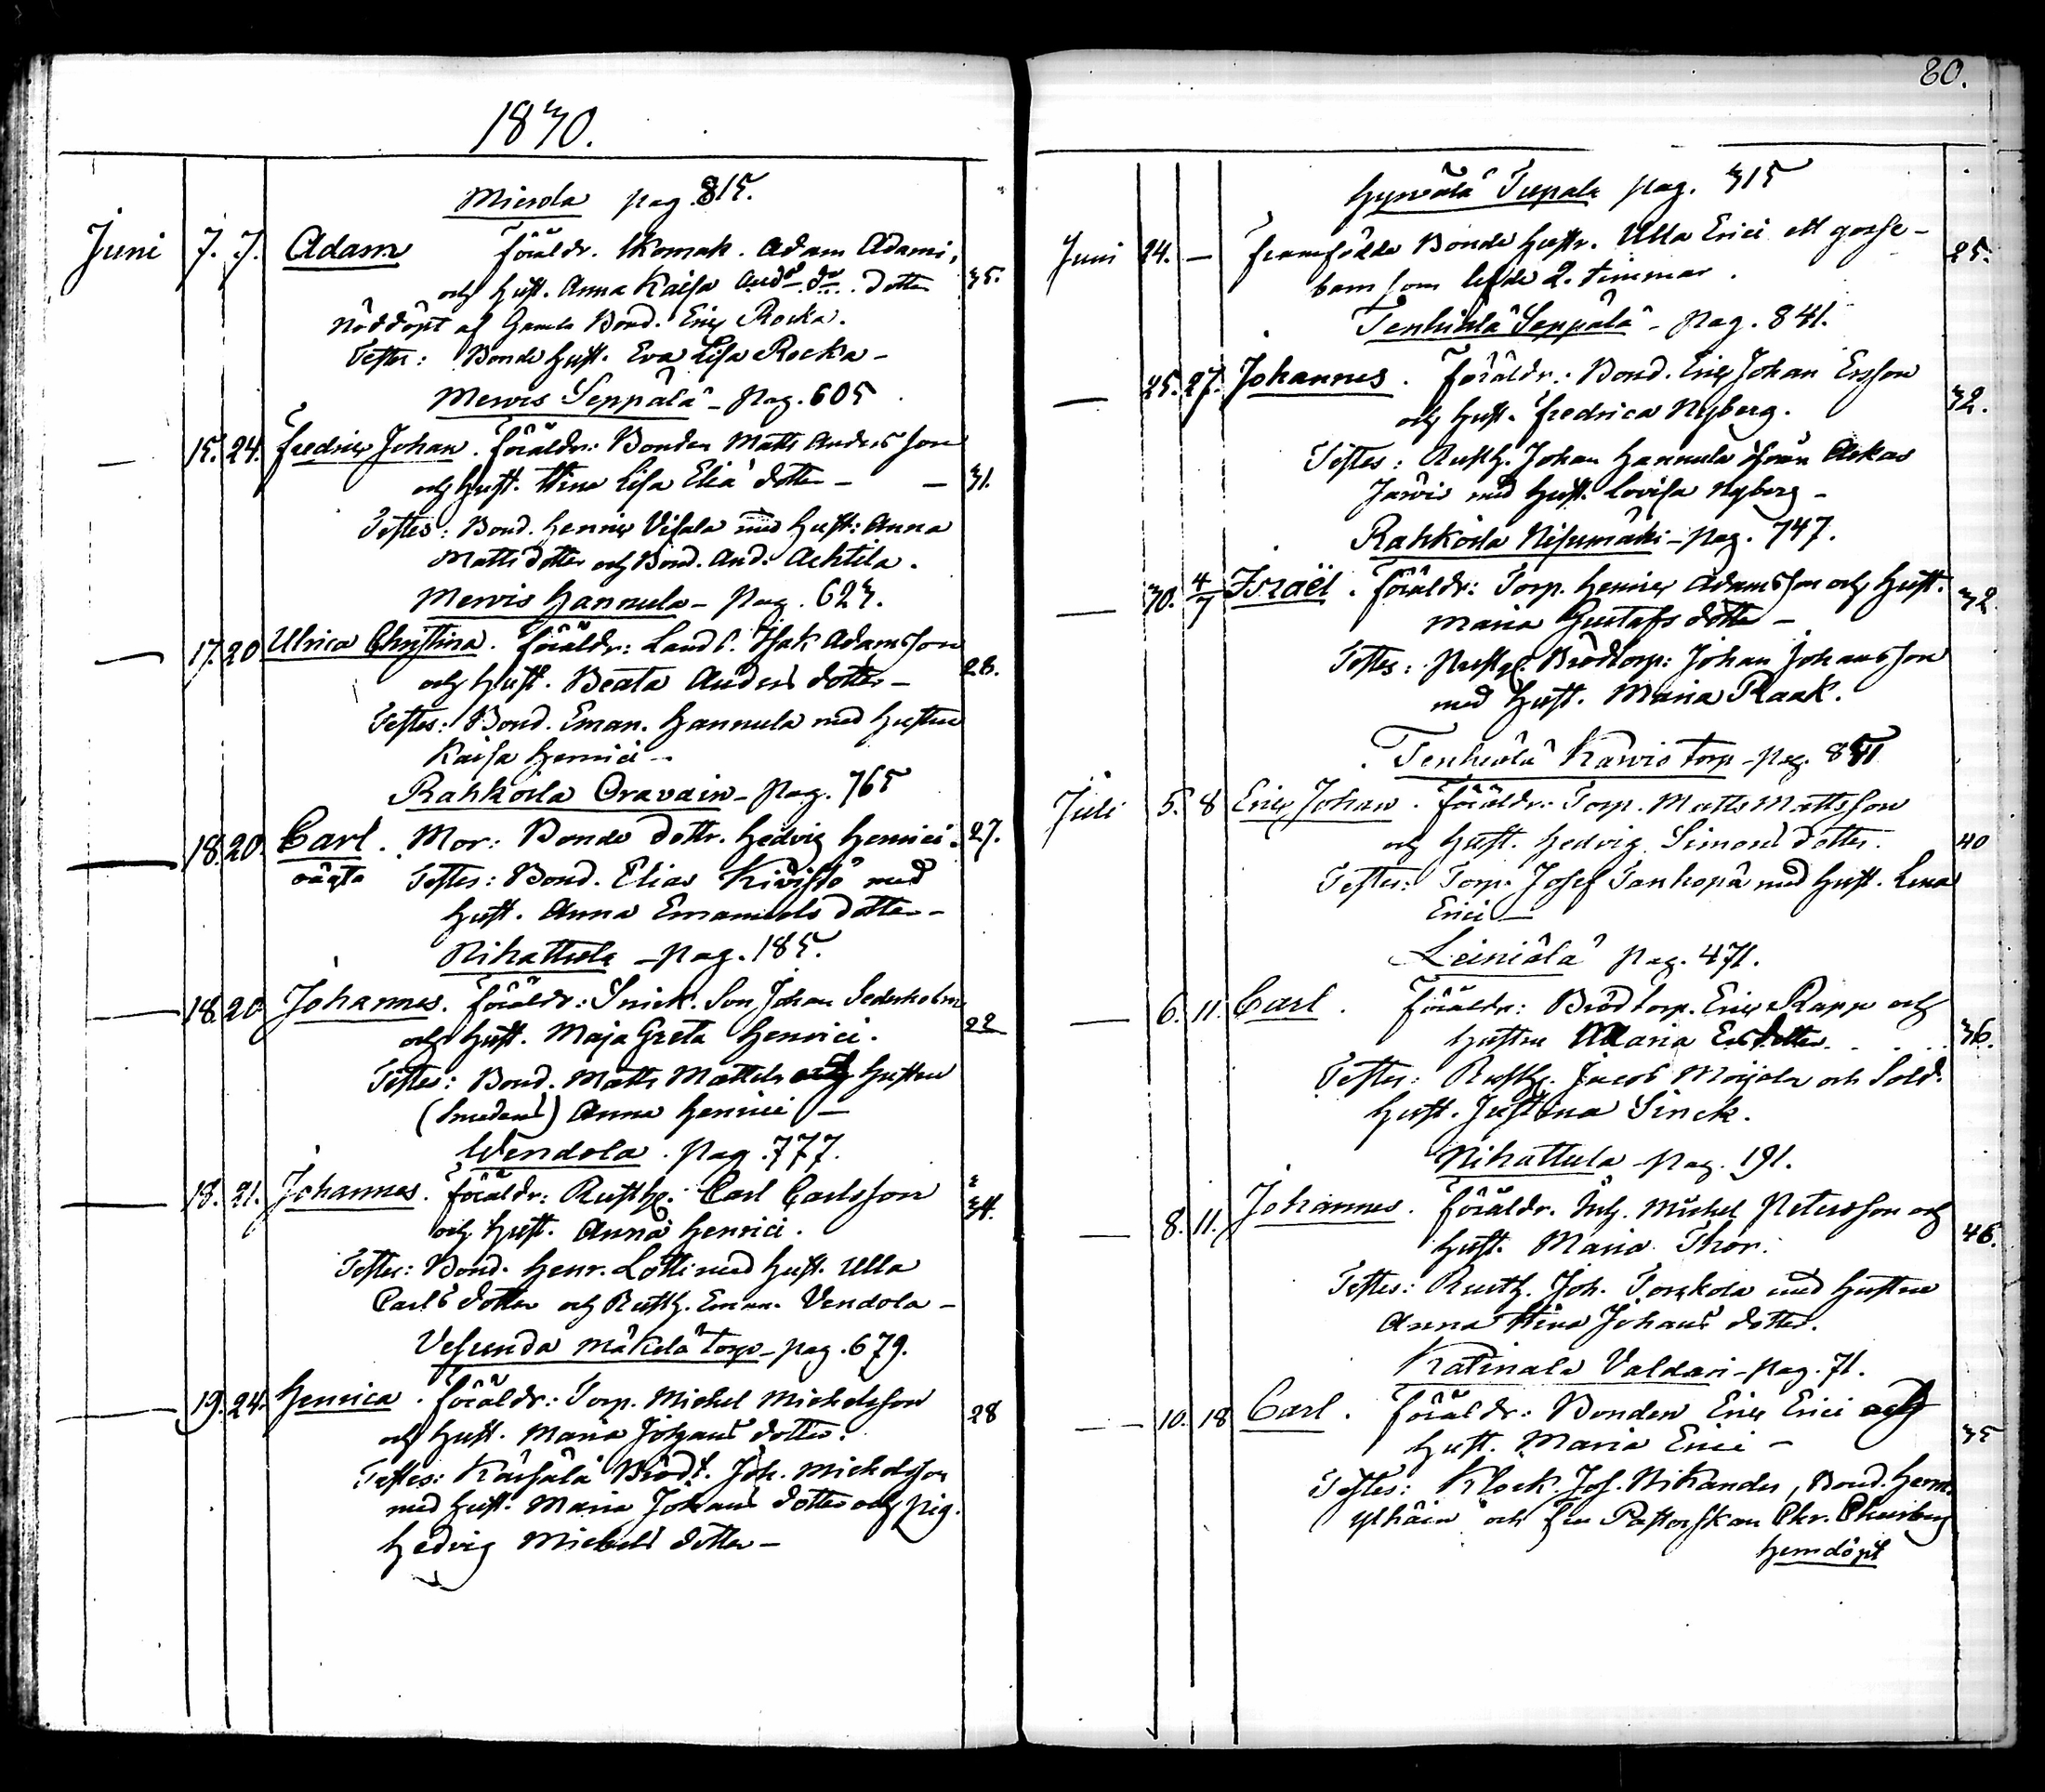 1830.
Mierola pag. 815.
Juni 7. 7. Adam Föräldr. Skomak. Adam Adami,
och Hust. Anna Kaisa And. dr. dotter 35.
Nöddöpt af Gamla Bond. Eric Rocka.
Testes: Bonde Hust. Eva Lisa Rocka –
Merwis Seppälä – Pag. 605
— 15. 24. Fredric Johan. Föräldr: Bonden Matts Andersson
och Hust. Stina Lisa Eliä dotter – – 31.
Testes: Bond. Henric Visala med Hust: Anna
Matts dotter och Bond. And. Achtila.
Merwis Hannula – Pag. 623.
— 17. 20 Ulrica Christina. Föräldr: Landb. Isak Adamsson
och Hust. Beata Anders dotter – 28.
Testes: Bond. Eman. Hannula med Hustru
Kaisa Henrici –
Rahkoila Oravain – Pag. 765
— 18. 20. Carl. Mor: Bonde dottr. Hedvig Henrici. 27.
oägta Testes: Bond. Elias Kivistö med
Hust. Anna Emanuels dotter –
Nihattula – pag. 185.
— 18. 20 Johannes. Föräldr: Snick. Son Johan Sederholm
och Hust. Maja Greta Henrici. 22
Testes: Bond. Matts Mattila och Hustru
(Smedens) Anna Henrici –
Wendola. Pag. 777.
— 18. 21. Johannes. Föräldr: Rusth. Carl Carlsson
och Hust. Anna Henrici. 34.
Testes: Bond. Henr. Lotti med Hust. Ulla
Carls dotter och Rusth. Eman. Vendola –
Vesunda Mäkelä torp – pag. 679.
— 19. 24. Henrica. Föräldr: Torp. Michel Michelsson
och Hust. Maria Johans dotter. 28
Testes: Karsälä Brödt. Joh. Michelsson
med Hust. Maria Johans dotter och Pig.
Hedvig Michels dotter –
80.
Hyrvälä Teepala pag. 315
Juni 24. – Framfödde Bonde Hustr. Ulla Erici ett gosse- 25.
barn som lefde 2. timmar.
Tenhiälä Seppälä – pag. 841.
— 25. 27. Johannes. Föräldr: Bond. Eric Johan Ersson
och Hust. Fredrica Nyberg. 32.
Testes: Rusth. Johan Hannula ifrån Ackas
Jarvis med Hust. Lovisa Nyberg –
Rahkoila Nisumäki – pag. 747.
— 30. 4/7 Israël. Föräldr: Torp. Henric Adamsson och Hust. 32
Maria Gustafs dotter –
Testes: Brödtorp: Johan Johansson
med Hust. Maria Raak.
Tenhiälä Karvis torp – pag. 851
Juli 5. 8 Eric Johan. Föräldr: Torp. Matts Mattsson
och Hust. Hedvig Simons dotter. 40
Testes: Torp. Josef Tanhopä med Hust. Lena
Erici –
Leiniälä pag. 471.
— 6. 11. Carl. Föräldr: Brödtorp. Eric Rapp och
Hustru Maria Ersdotter. 36.
Testes: Rusth. Jacob Moijala och Sold.
Hust. Justina Sinck.
Nihattula – pag. 191.
— 8. 11. Johannes. Föräldr. Inh. Michel Petersson och
Hust. Maria Thor. 46.
Testes: Rusth. Joh. Torckola med Hustru
Anna Stina Johans dotter.
Katinala Valdari – pag. 71.
— 10. 18 Carl. Föräldr: Bonden Eric Erici och
Hust. Maria Erici – 35
Testes: Klock. Jos. Nikander, Bond. Herm.
Ylhäin och Fru Pastorskan Chr.
hemdöpt